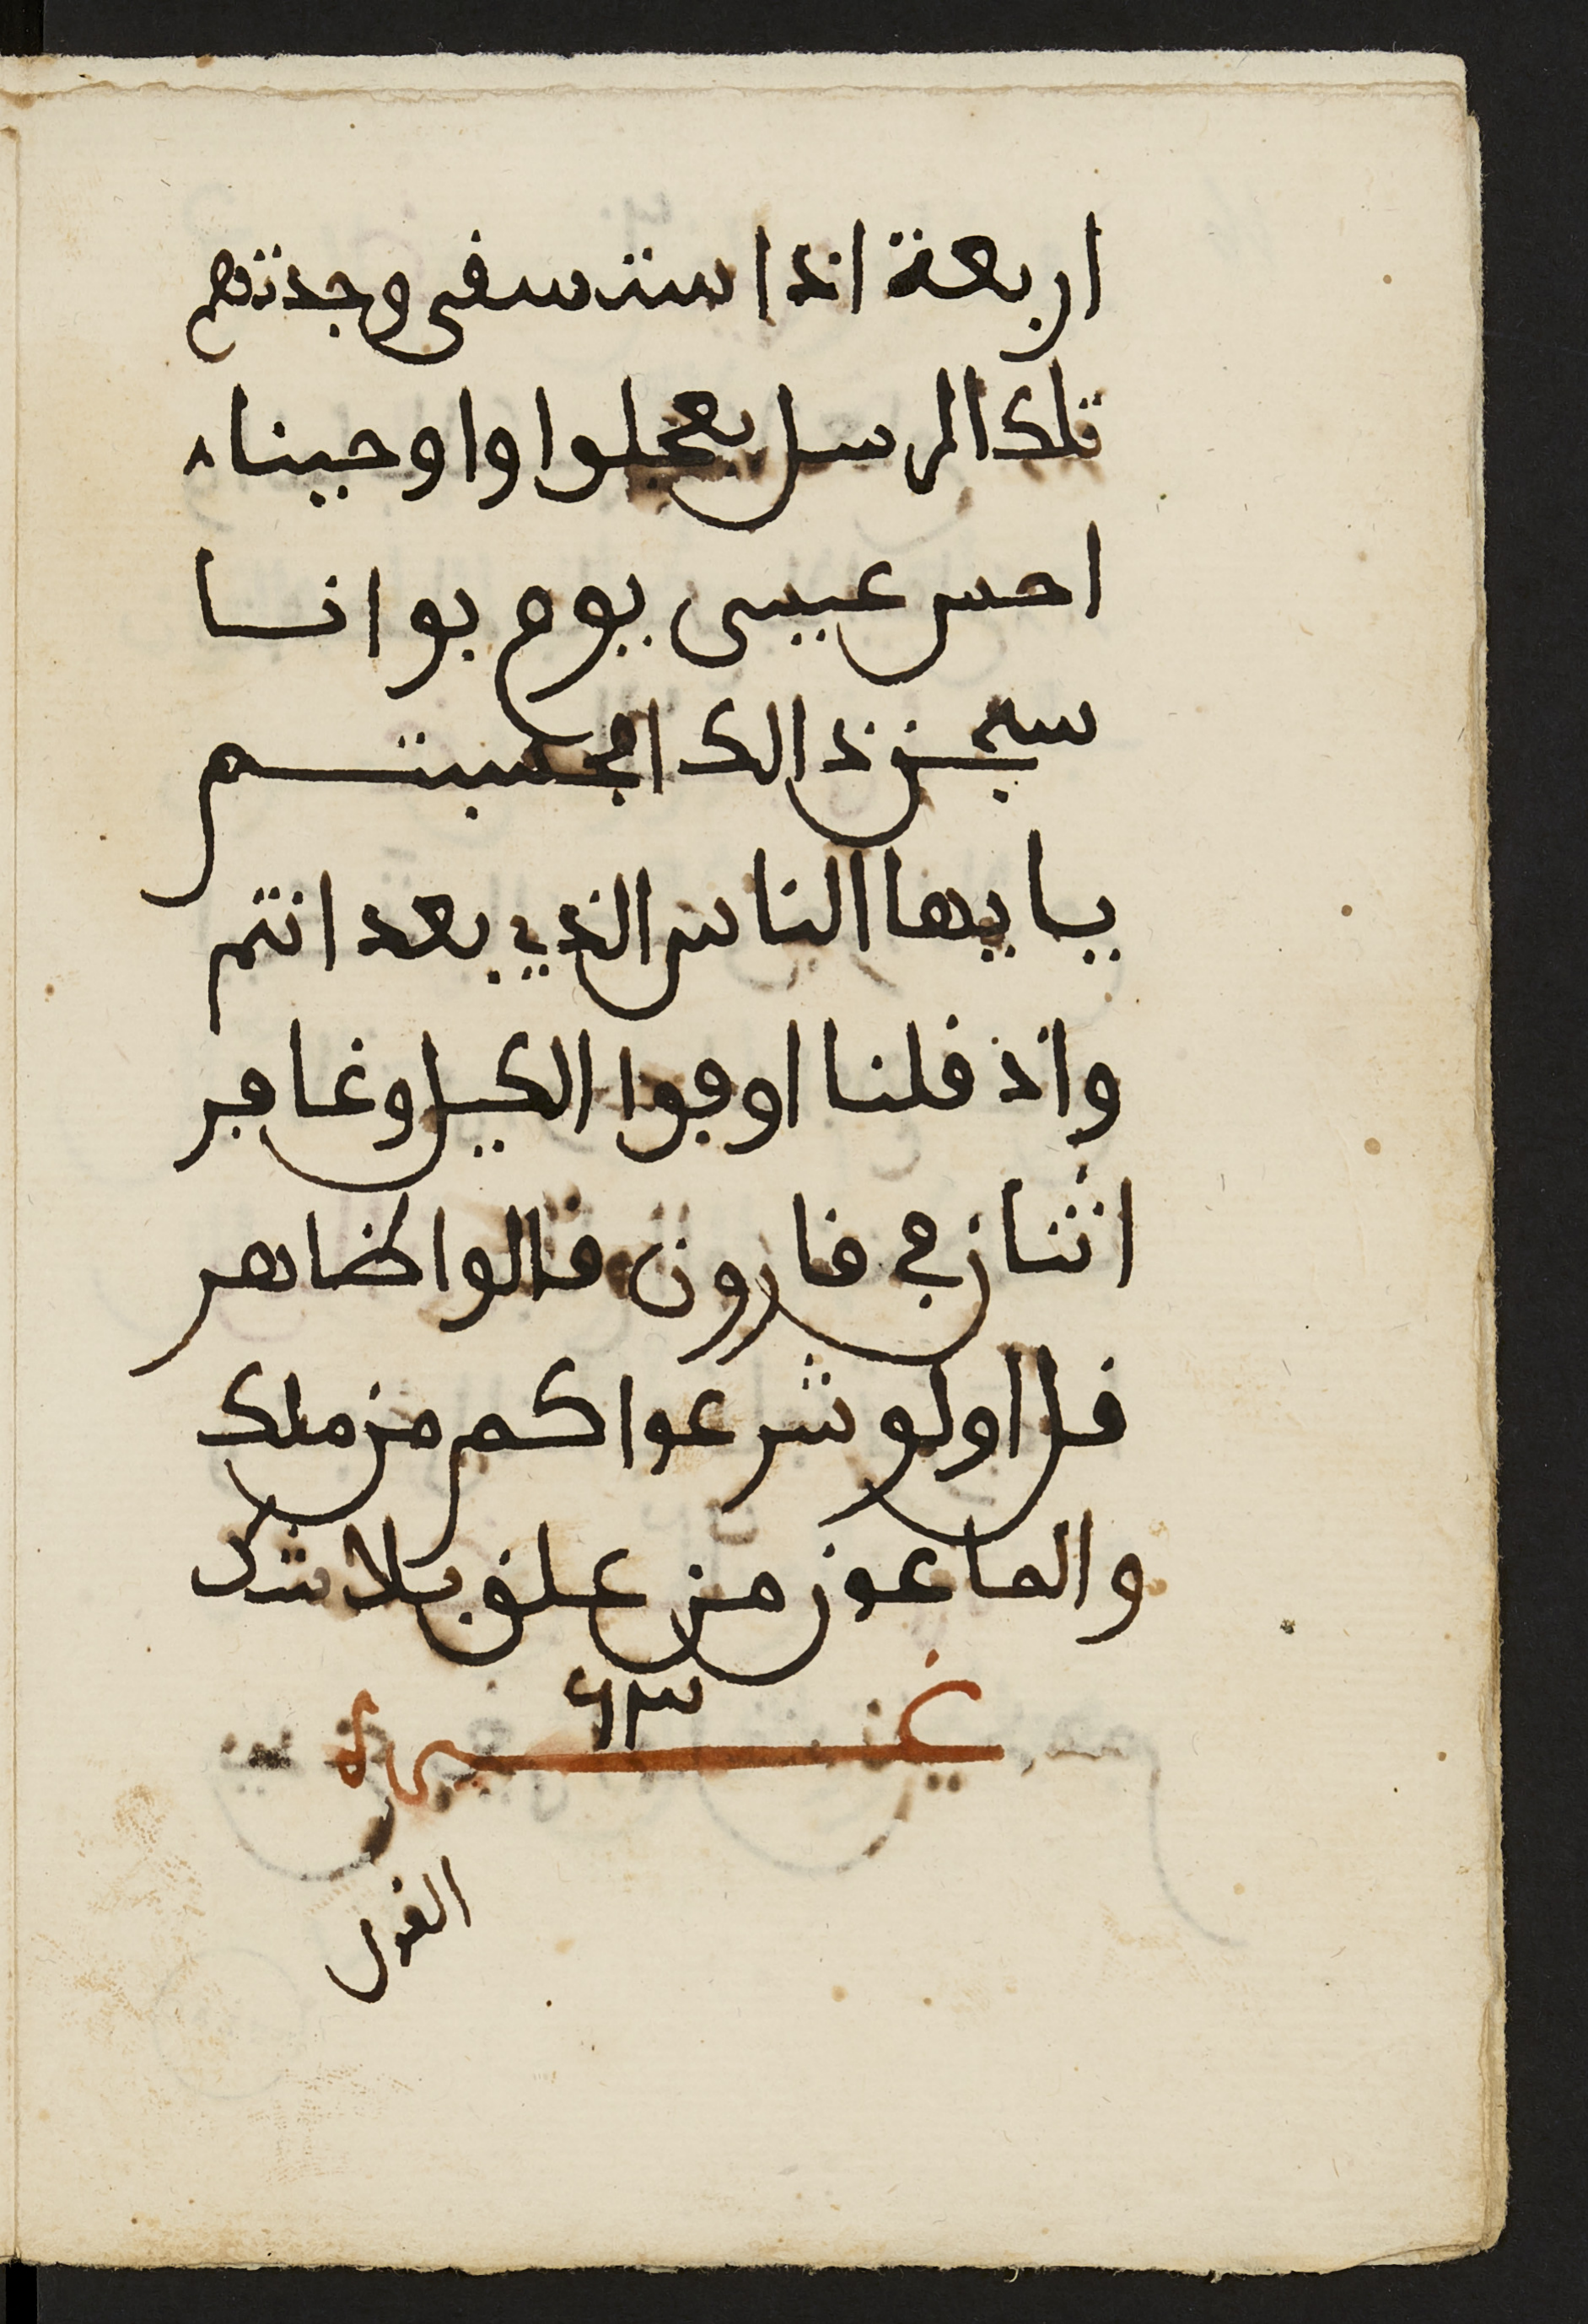 اربعة اذا ستسفى وجدتهم
تلك الرسل بعجلوا واوحينا
احس عيسى يوم بوانسا
ذالك احسبتم
يايها الناس الذي بعد انتم
واذ قلنا اوفوا الكيل وغافر
اثنان في قارون قالوا ظاهر
قل اولو شرعوا كم من ملك
والماعون من علق بلا شك
القول